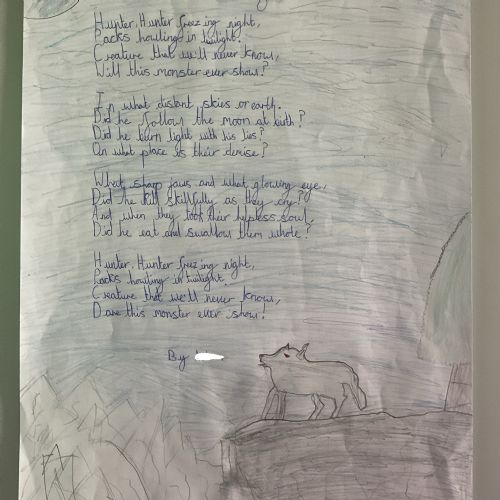 Hunter, Hunter freezing night,
Packs howling in twilight.
Creature that we'll never know,
Will this monster ever show?
In what distant skies or earth.
Did he follow the moon at birth?
Did he burn light with his lies?
On what place is their demise?
What sharp jaws and what glowing eye,
Did he kill skillfully as they cry?
And when they took their hypless soul,
Did he eat and swallow them whole?
Hunter, Hunter freezing night,
Packs howling in twilight.
Creature that we'll never know,
Dare this monster ever show!
By